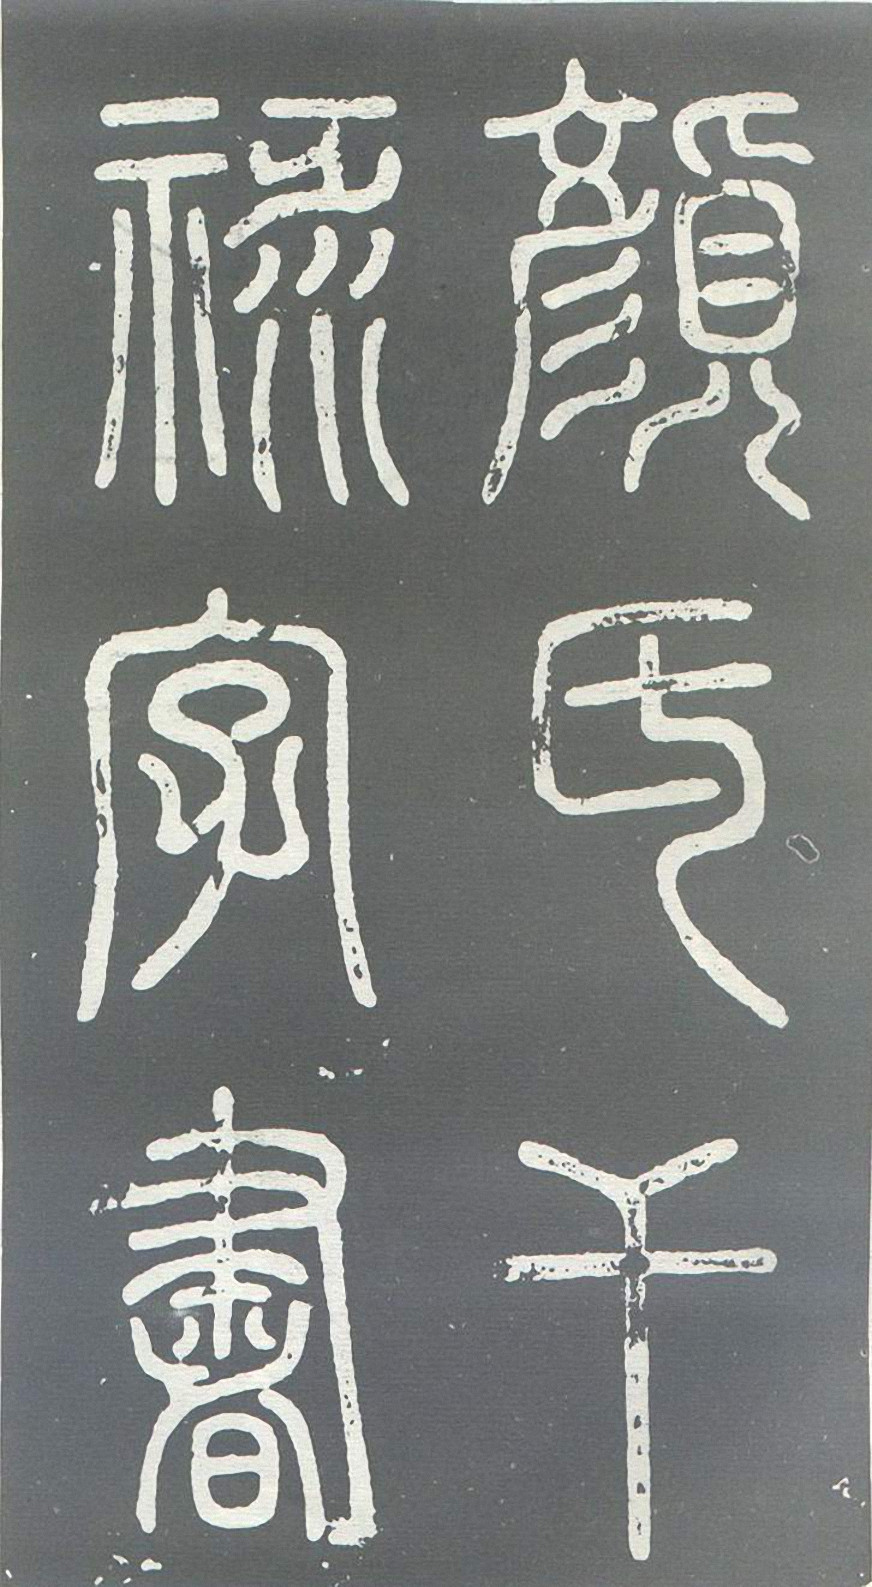 顏氏干
祿字書